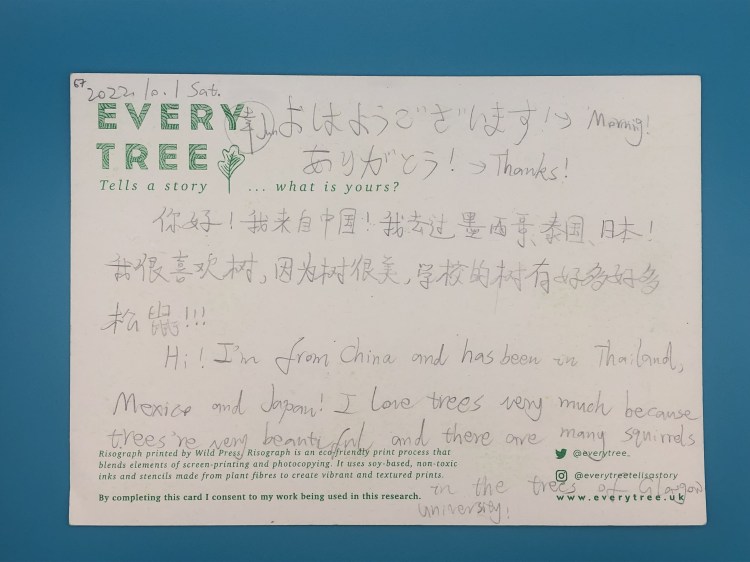 67
2022.10.1 Sat.
EVERY
TREE
Tells a story ... what is yours?
おはようございます!→ Morning!
ありがとう!→Thanks!
你好!我来自中国!我去过墨西哥、泰国、日本!
我很喜欢树,因为树很美,学校的树有好多好多
松鼠!!!
Hi! I'm from China and has been in Thailand,
Mexico and Japan! I love trees very much because
trees're very beautiful and there are many squirrels
in the trees of Glasgow
University!
Risograph printed by Wild Press. Risograph is an eco-friendly print process that
blends elements of screen-printing and photocopying. It uses soy-based, non-toxic
inks and stencils made from plant fibres to create vibrant and textured prints.
By completing this card I consent to my work being used in this research.
@everytree_
@everytreetellsastory
www.everytree.uk